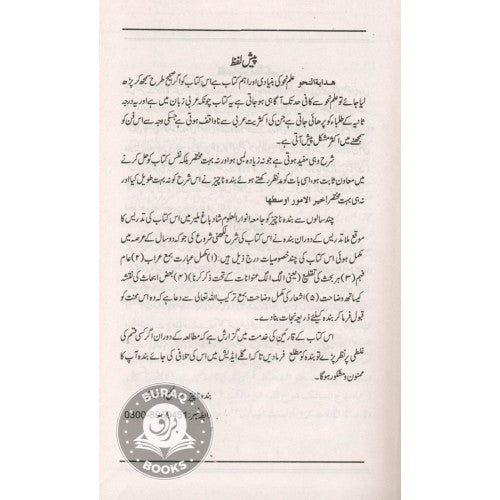 پیش لفظ
هدایة النحو علم نحو کی بنیادی اور اہم کتاب ہے اس کتاب کو اگر صحیح طرح سمجھ کر پڑھ
لیا جائے تو علم نحو سے کافی حد تک آگاہی ہو جاتی ہے یہ کتاب چونکہ عربی زبان میں ہے اور یہ درجہ
ثانیہ کے طلباء کو پڑھائی جاتی ہے جن کی اکثریت عربی سے ناواقف ہوتی ہے جسکی وجہ سے اس فن کو
سمجھنے میں اکثر مشکل پیش آتی ہے۔
شرح وہی مفید ہوتی ہے جو نہ زیادہ لمبی ہو اور نہ بہت مختصر بلکہ نفس کتاب کو حل کرنے
میں معاون ثابت ہو، اسی بات کو مدنظر رکھتے ہوئے بندہ ناچیز نے اس شرح کو نہ بہت طویل کیا اور
نہ ہی بہت مختصر اخیر الامور اوسطها
چند سالوں سے بندہ ناچیز کو جامعہ انوار العلوم شاد باغ ملیر میں اس کتاب کی تدریس کا
موقع ملا تدریس کے دوران بندہ نے اس کتاب کی شرح لکھنی شروع کی جو کہ دو سال کے عرصہ میں
مکمل ہوئی اس کتاب کی چند خصوصیات درج ذیل ہیں: (۱) مکمل عبارت بمع اعراب (۲) عام
فہم (۳) ہر بحث کی تقطیع (یعنی الگ الگ عنوانات کے تحت ذکر کرنا) (۴) بعض ابحاث کی نقشہ
کیساتھ وضاحت (۵) اشعار کی مکمل وضاحت بمع ترکیب اللہ تعالی سے دعا ہے کہ وہ اس محنت کو
قبول فرما کر بندہ کیلئے ذریعہ نجات بنادے۔
اس کتاب کے قارئین کی خدمت میں گزارش ہے کہ مطالعہ کے دوران اگر کسی قسم کی
غلطی پر نظر پڑے تو بندہ کو مطلع فرمادیں تاکہ اگلے ایڈیشن میں اس کی تلافی کی جائے بندہ آپ کا
ممنون و مشکور ہوگا۔
بندہ ناچیز
BURAQ
BOOKS